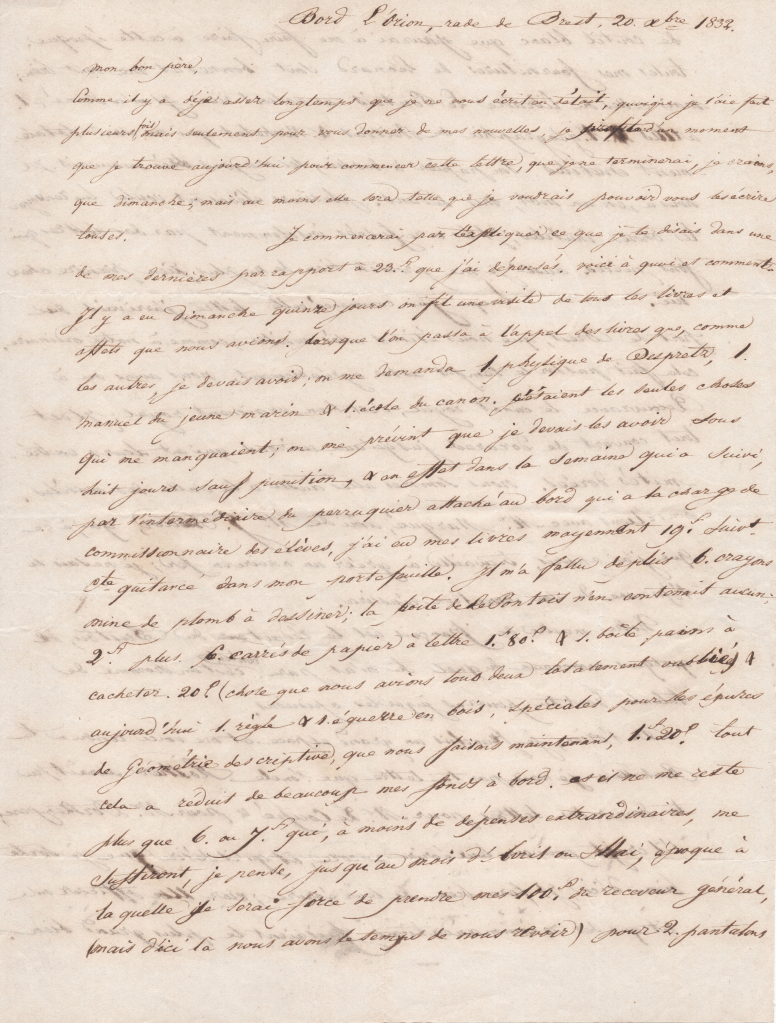 Bord L'Orion, rade de Brest, 20. xbre 1832.
mon bon père,
Comme il y a déjà assez longtemps que je ne vous écrit en détail, quoique je l'aie fait
plusieurs fois mais seulement pour vous donner de mes nouvelles, je profite d'un moment
que je trouve aujourd'hui pour commencer cette lettre, que je ne terminerai, je crains,
que dimanche; mais au moins elle sera telle que je voudrais pouvoir vous les écrire
toutes. Je commencerai par t'expliquer ce que je te disais dans une
de mes dernières par rapport à 23.f que j'ai dépensés. voici à quoi et comment.
Il y a eu dimanche quinze jours on fit une visite de tous les livres et
effets que nous avions. Lorsque l'on passa à l'appel des livres que, comme
les autres, je devais avoir, on me demanda 1 physique de Despretz, 1.
manuel du jeune marin & 1. école du canon. C'étaient les seules choses
qui me manquaient; on me prévint que je devais les avoir sous
huit jours sauf punition, & en effet dans la semaine qui a suivi,
par l'intermédiaire du perruquier attaché au bord qui a la charge de
commissionnaire des élèves, j'ai eu mes livres moyennant 19.f suivt.
cte quitancé dans mon portefeuille. Il m'a fallu de plus 6. crayons
mine de plomb à dessiner; la boîte de Le Pontois n'en contenait aucun;
2.f plus 6. carrés de papier à lettre 1.f 80.c & 1. boîte pains à
cacheter. 20.c (chose que nous avions tous deux totalement oubliés) &
aujourd'hui 1. règle & 1. équerre en bois, spéciales pour les épures
de Géométrie descriptive, que nous faisons maintenant, 1.f 20.c tout
cela a réduit de beaucoup mes fonds à bord. et il ne me reste
plus que 6. ou 7.f qui, à moins de dépenses extraordinaires, me
suffiront, je pense, jusqu'au mois d'Avril ou Mai, époque à
laquelle je serai forcé de prendre mes 100.f du receveur général,
(mais d'ici là nous avons le temps de nous revoir) pour 2. pantalons